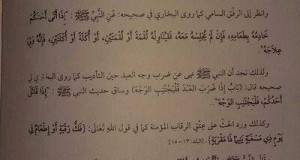 وانظر إلى الرفق السامي كما روى البخاري في صحيحه: عن النبي ﷺ: "إذا أتى أحدكم
خادمه بطعامه، فإن لم يجلسه معه، فليناوله لقمة أو لقمتين، أو أكلة أو أكلتين، فإنه ولي
علاجه"
وكذلك نجد أن النبي ﷺ نهى عن ضرب وجه العبد حين التأديب كما روى البخاري في
صحيحه قال: (باب إذا ضرب العبد فليجتنب الوجه) وساق حديث النبي ﷺ: "إذا قاتل
أحدكم، فليجتنب الوجه"
وكذلك ورد الحث على عتق الرقاب المؤمنة كما في قول الله تعالى: ﴿فك رقبة أو إطعام في
يوم ذي مسغبة يتيما ذا مقربة﴾ [البلد: ١٣-١٥]